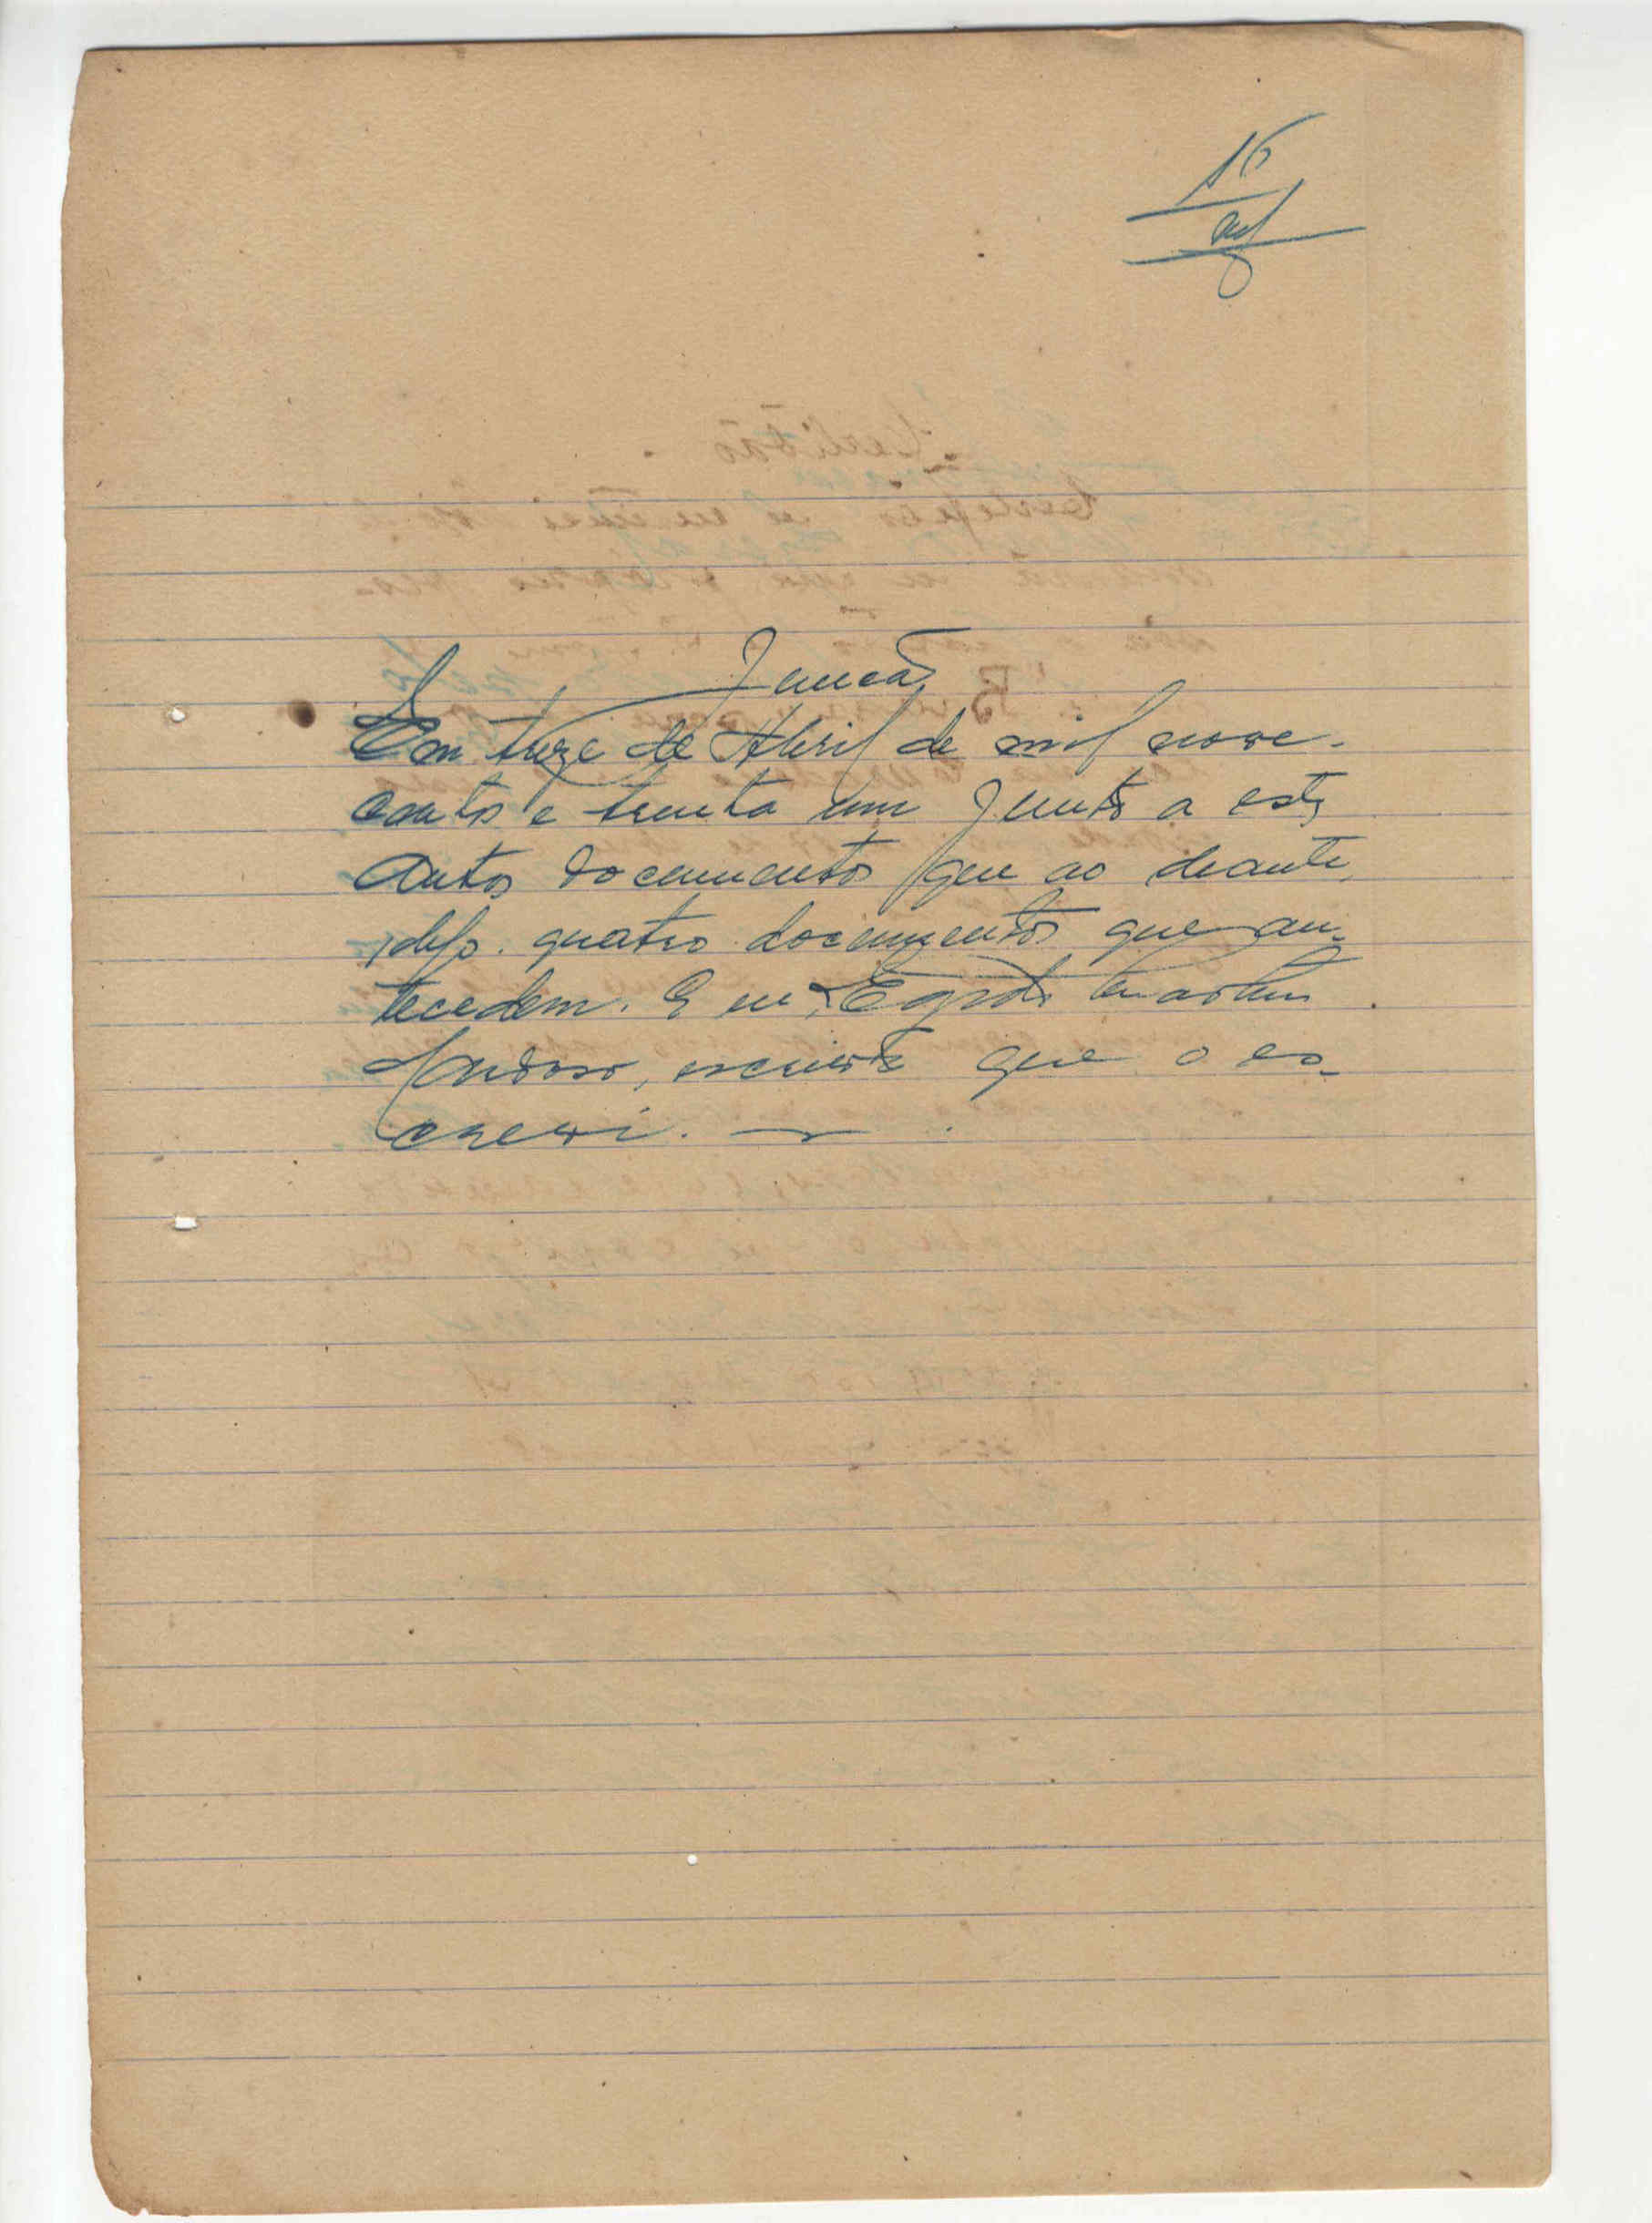 16
Juncão
Em treze de Abril de mil nove-
centos e trenta um junto a estes
autos documentos que ao deante,
digo. quatro documentos que an-
tecedem. E eu,
Cardoso, escrivão que o es-
crevi.